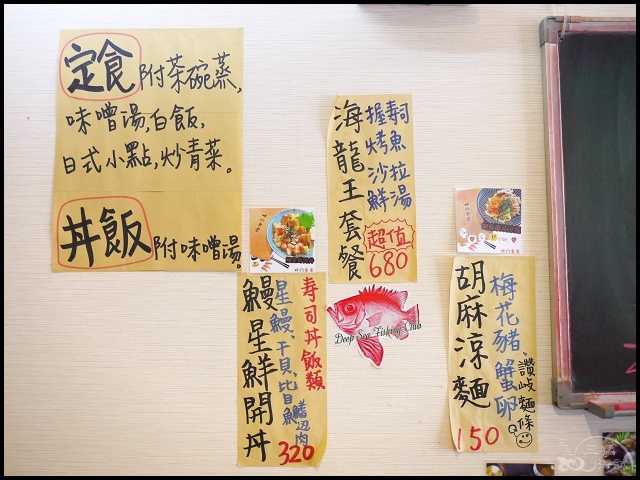 定食 附茶碗蒸,
味噌湯,白飯,
日式小點,炒青菜。
丼飯 附味噌湯。
海龍王套餐
握壽司
烤魚
沙拉
鮮湯
超值
680
壽司丼飯類
鰻星鮮開丼
星鰻、干貝、比目魚鰭邊肉
320
Deep Sea Fishing Club
胡麻涼麵
梅花豬、蟹卵
讚岐麵條
Q
150